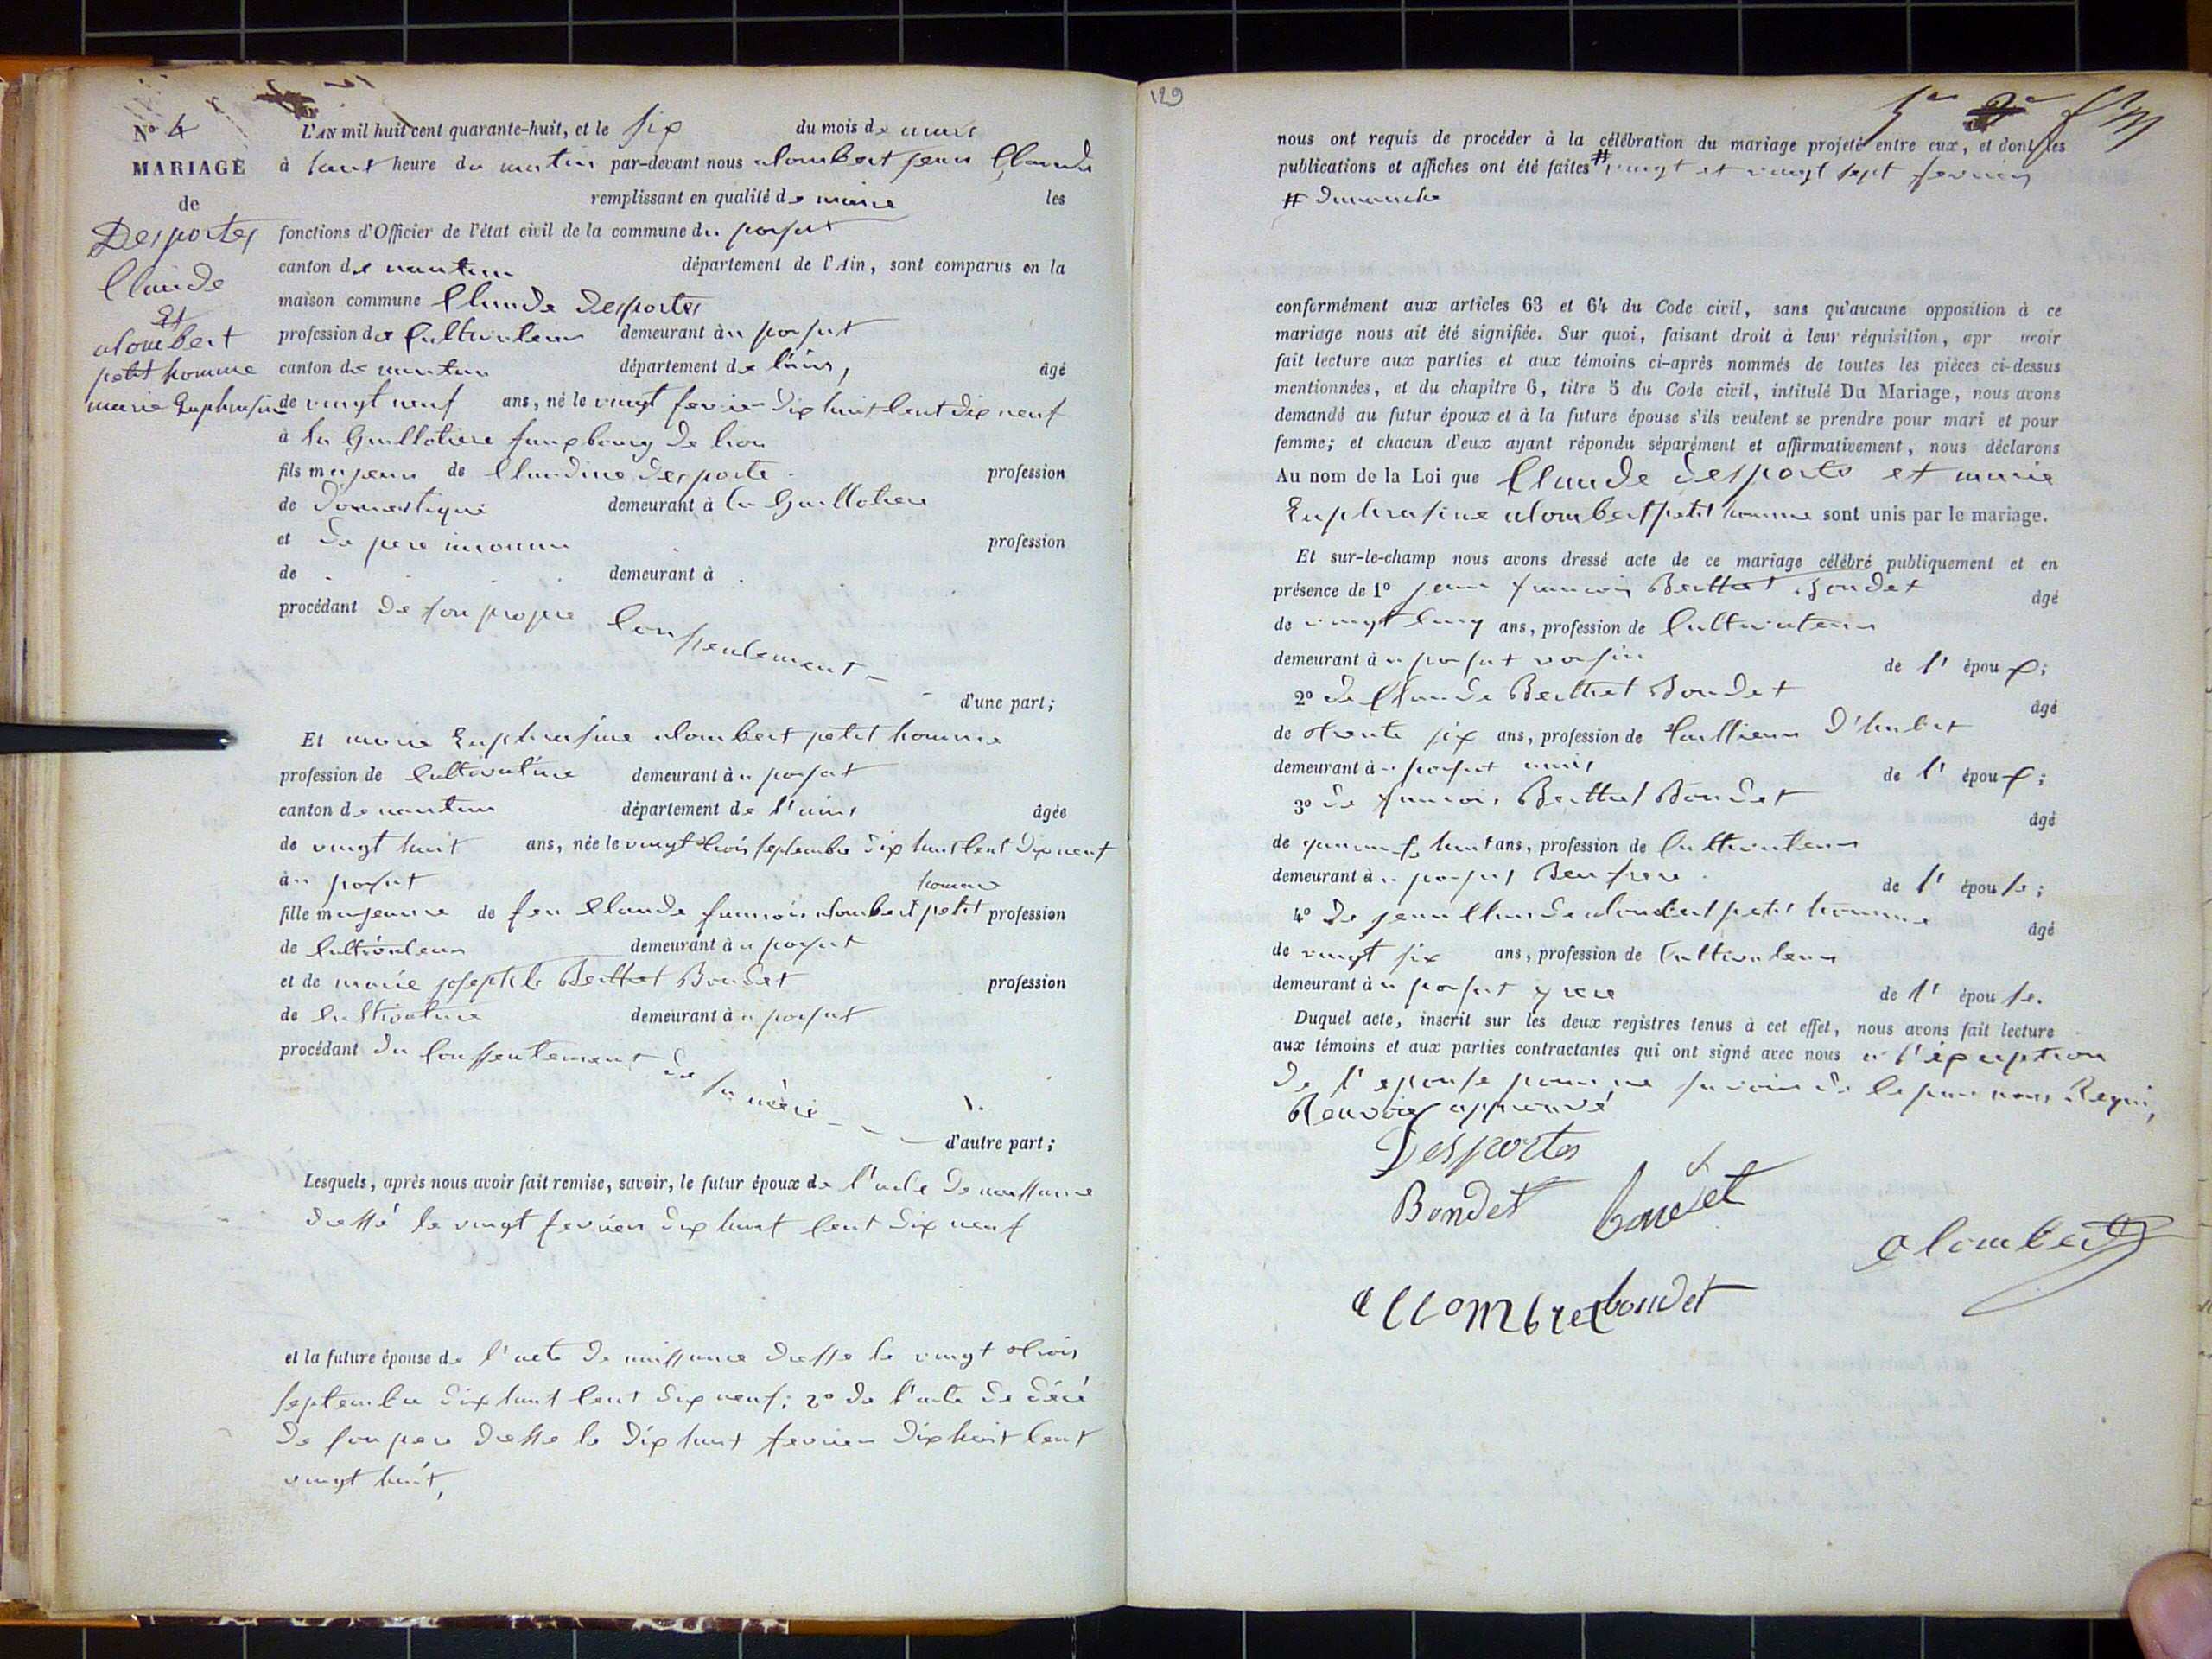 N° 4
MARIAGE
de
Desportes
Claude
et
alombert
petit homme
marie Euphrasine
L'AN mil huit cent quarante-huit, et le six du mois de mars
à heure du matin par-devant nous alombert jean Claude
remplissant en qualité de maire les
fonctions d'Officier de l'état civil de la commune du
canton de nantua département de l'Ain, sont comparus en la
maison commune Claude Desportes
profession de Cultivateur demeurant au
canton de nantua département de l'ain, âgé
de vingt neuf ans, né le vingt fevrier dix huit cent dix neuf
à la Guillotiere fauxbourg de lion
fils majeur de Claudine desporte profession
de domestique demeurant à la Guillotiere
et de pere inconnu profession
de demeurant à
procédant de son propre Consentement
d'une part;
Et marie Euphrasine alombert petit homme
profession de Cultivatrice demeurant au
canton de nantua département de l'ain âgée
de vingt huit ans, née le vingt trois septembre dix huit cent dix neuf
au
homme
fille majeure de feu Claude francois alombert petit profession
de Cultivateur demeurant au
et de marie josephte Berthet Bondet profession
de Cultivatrice demeurant au
procédant du Consentement de sa mère
d'autre part;
Lesquels, après nous avoir fait remise, savoir, le futur époux de l'acte de naissance
dressé le vingt fevrier dix huit cent dix neuf
et la future épouse de l'acte de naissance dresse le vingt trois
septembre dix huit cent dix neuf; 2° de l'acte de décé
de son pere dresse le dix huit fevrier dix huit cent
vingt huit,
129
nous ont requis de procéder à la célébration du mariage projeté entre eux, et dont les
publications et affiches ont été faites # vingt et vingt sept fevrier
# dimanche
conformément aux articles 63 et 64 du Code civil, sans qu'aucune opposition à ce
mariage nous ait été signifiée. Sur quoi, faisant droit à leur réquisition, apr avoir
fait lecture aux parties et aux témoins ci-après nommés de toutes les pièces ci-dessus
mentionnées, et du chapitre 6, titre 5 du Code civil, intitulé Du Mariage, nous avons
demandé au futur époux et à la future épouse s'ils veulent se prendre pour mari et pour
femme; et chacun d'eux ayant répondu séparément et affirmativement, nous déclarons
Au nom de la Loi que Claude desportes et marie
Euphrasine alombert petit homme sont unis par le mariage.
Et sur-le-champ nous avons dressé acte de ce mariage célébré publiquement et en
présence de 1° jean francois Berthet Bondet âgé
de vingt cinq ans, profession de Cultivateur
demeurant au voisin de l'époux;
2° de Claude Berthet Bondet âgé
de trente six ans, profession de tailleur D'habit
demeurant au amis de l'époux;
3° de francois Berthet Bondet âgé
de huit ans, profession de Cultivateur
demeurant au Beau frere de l'épouse;
4° de jean Claude alombert petit homme âgé
de vingt six ans, profession de Cultivateur
demeurant au frere de l'épouse.
Duquel acte, inscrit sur les deux registres tenus à cet effet, nous avons fait lecture
aux témoins et aux parties contractantes qui ont signé avec nous a l'exception
de l'epouse pour ne savoir de le par nous Requi,
Renvoie approuvé
Desportes
Bondet bondet
alombert
allombret bondet